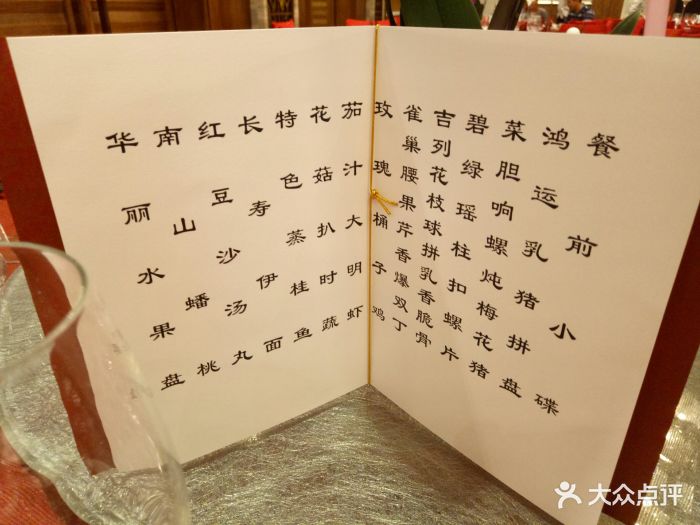 餐前小碟
鸿运乳猪拼盘
菜胆响螺炖梅花猪
碧绿瑶柱扣螺片
吉列花枝球拼乳香脆骨
雀巢腰果芹香爆双丁
玫瑰桶子鸡
茄汁大明虾
花菇扒时蔬
特色蒸桂鱼
长寿伊面
红豆沙汤丸
南山蟠桃
华丽水果盘
大众点评